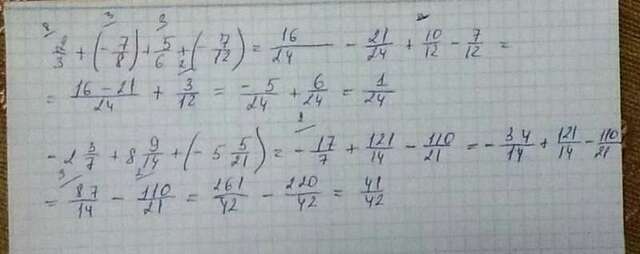 2/3 + (- 7/8) + 5/6 + (- 7/12) = 16/24 - 21/24 + 10/12 - 7/12 =
= 16 - 21/24 + 3/12 = - 5/24 + 6/24 = 1/24
- 2 3/7 + 8 9/14 + (- 5 5/21) = - 17/7 + 121/14 - 110/21 = - 34/14 + 121/14 - 110/21
= 87/14 - 110/21 = 261/42 - 220/42 = 41/42